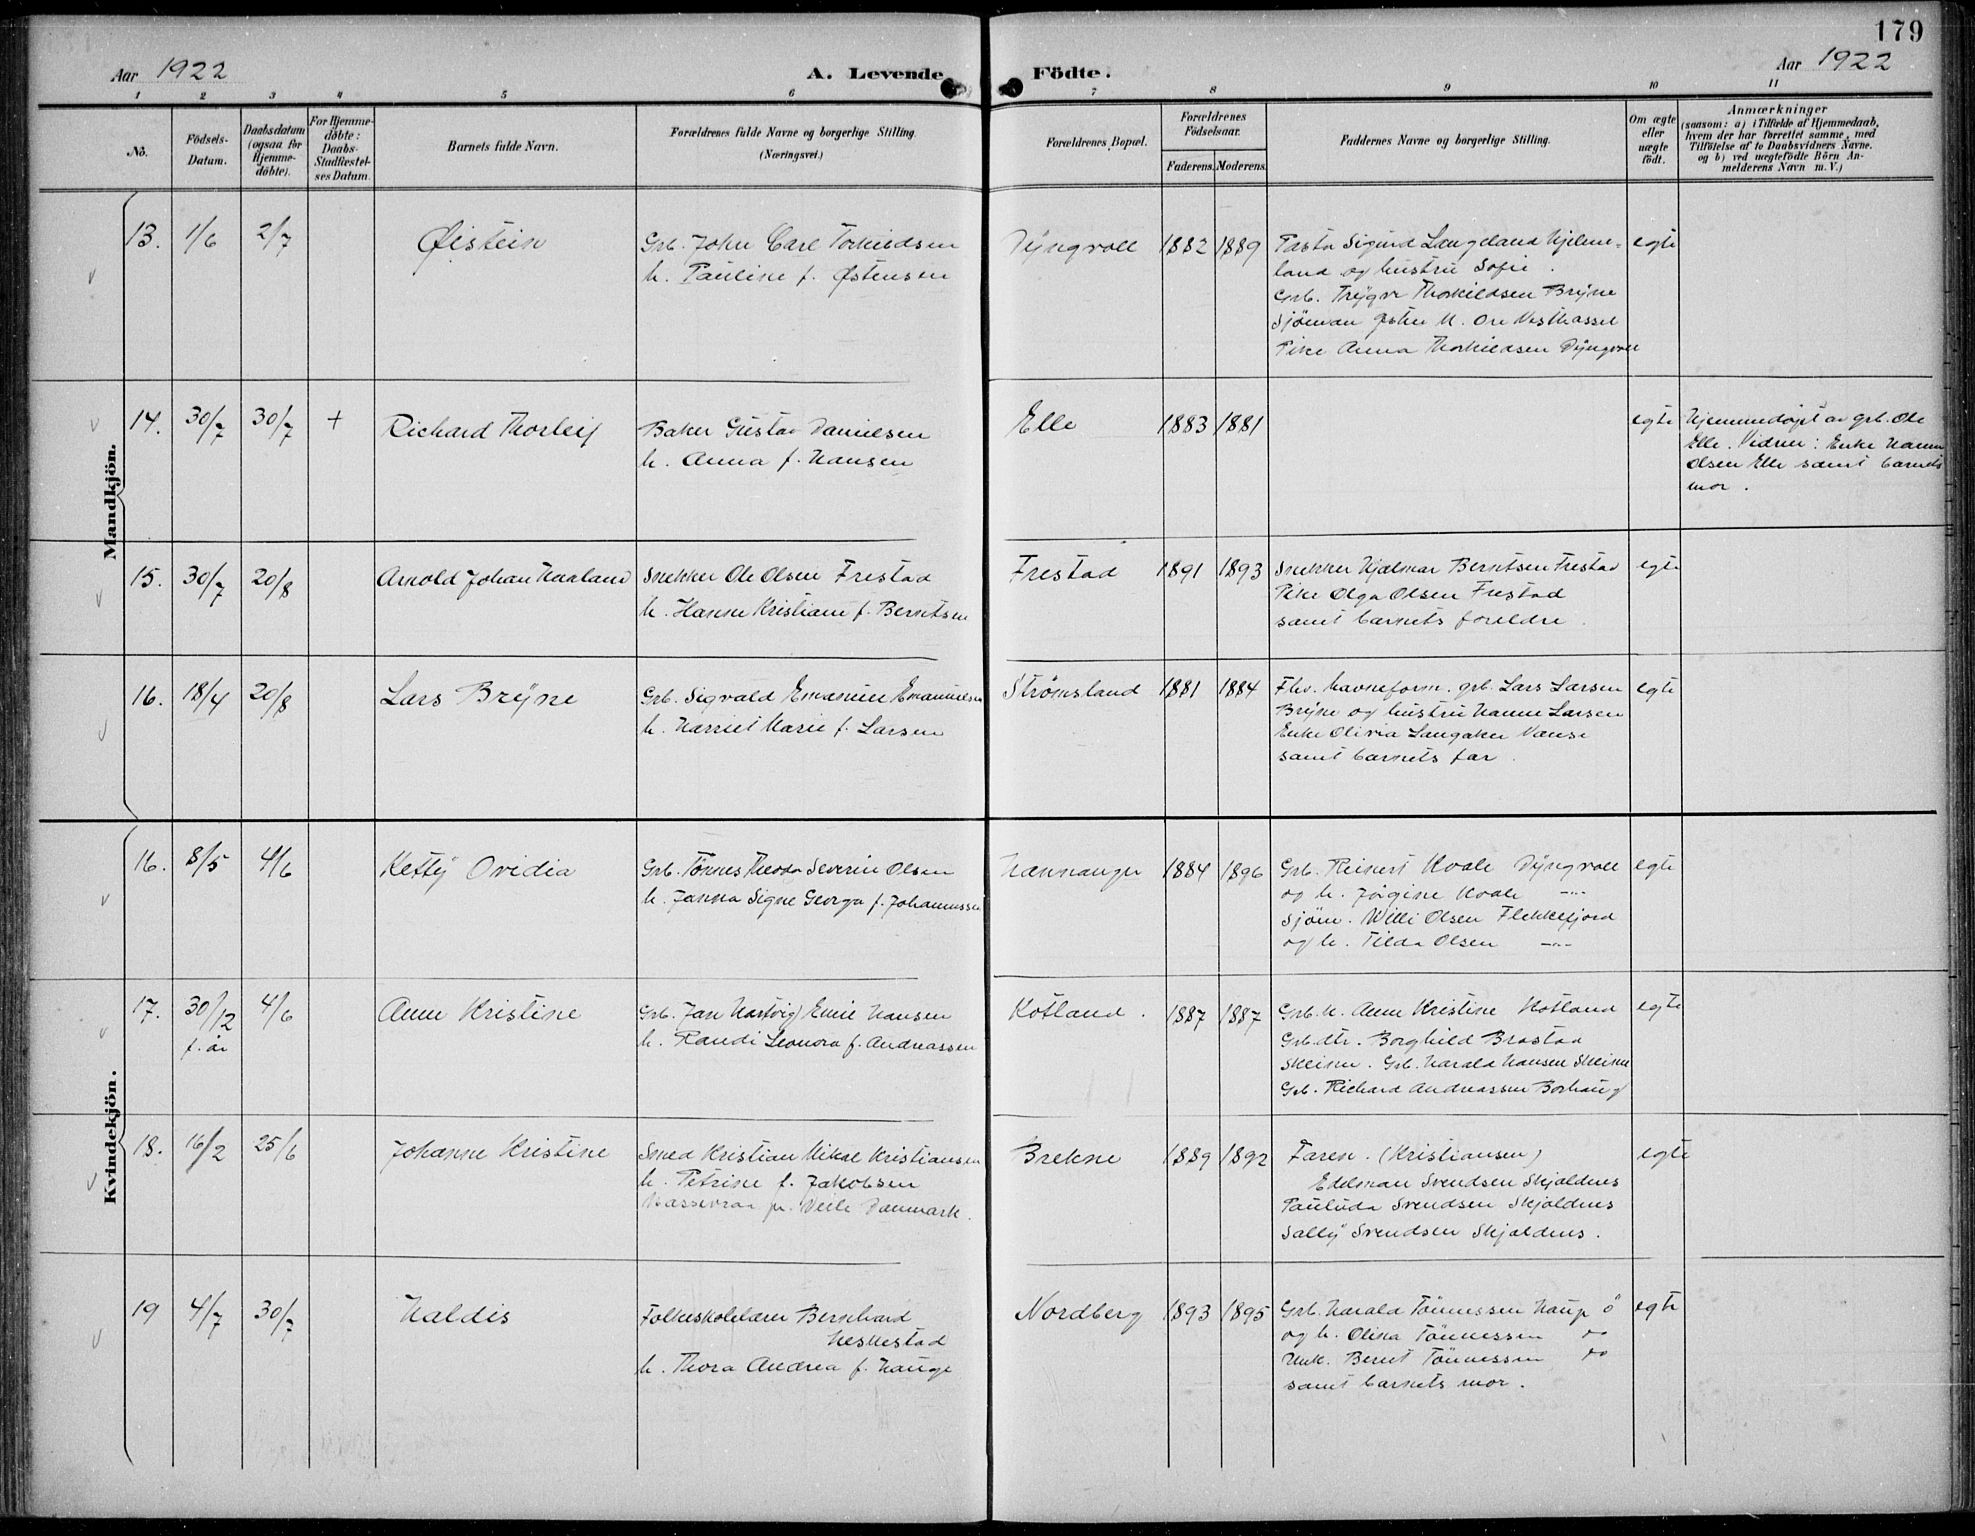 179
Aar 1922 A. Levende Födte. Aar 1922
1 2 3 4 5 6 7 8 9 10 11
No.
Födsels-
Datum.
Daabsdatum
(ogsaa for
Hjemme-
döbte).
For Hjemme-
döbte:
Daabs-
Stadfæstel-
ses Datum.
Barnets fulde Navn.
Forældrenes fulde Navne og borgerlige Stilling.
(Næringsvei.)
Forældrenes Bopæl.
Forældrenes
Födselsaar.
Faderens. Moderens.
Faddernes Navne og borgerlige Stilling.
Om ægte
eller
uægte
født.
Anmærkninger
(saasom: a) i Tilfælde af Hjemmedaab,
hvem der har forrettet samme, med
Tilföielse af to Daabsvidners Navne.
og b) ved uægtefödte Börn An-
melderens Navn m. V.)
Mandkjön.
13. 1/6 2/7 Øistein
Grb. John Carl Torkildsen
h. Pauline f. Østensen
Dyngvoll 1882 1889
Pastor Sigurd Langeland Hjelme-
land og hustru Sofie.
Grb. Trygve Thorkildsen Bryne
Sjöman Østen M. Ore Vesthassel
Pike Anna Thorkildsen Dyngvoll
egte
14. 30/7 30/7 + Richard Thorleif
Baker Gustav Danielsen
h. Anna f. Hansen
Elle 1883 1881
egte
Hjemmedöpt av grb. Ole
Elle. Vidner: Enke Hanne
Olsen Elle samt barnets
mor.
15. 30/7 20/8 Arnold Johan Haaland
Snekker Ole Olsen Frestad
h. Hanne Kristiane f. Berntsen
Frestad 1891 1893
Snekker Hjalmar Berntsen Frestad
Pike Olga Olsen Frestad
samt barnets foreldre.
egte
16. 18/4 20/8 Lars Bryne
Grb. Sigvald Emanuel Emanuelsen
h. Harriet Marie f. Larsen
Strømsland 1881 1884
Fhv. havneform. grb. Lars Larsen
Bryne og hustru Hanne Larsen
Enke Olivia Langaker Vanse
samt barnets far.
egte
Kvindekjön.
16. 8/5 4/6 Ketty Ovidia
Grb. Tönnes Theodor Severin Olsen
h. Janna Signe Georga f. Johannessen
Hannanger 1884 1896
Grb. Reinert Hvale Dyngvoll
og h. Jörgine Hvale -"-
Sjöm. Willi Olsen Flekkefjord
og h. Tilda Olsen -"-
egte
17. 30/12 f. år 4/6 Anne Kristine
Grb. Jan Hartvig Emil Hansen
h. Randi Leonora f. Andreassen
Kotland. 1887 1887
Grb. h. Anne Kristine Kotland
Grb. dtr. Borghild Brastad
Skeime. Grb. Harald Hansen Skeime
Grb. Richard Andreassen Borhaug
egte
18. 16/2 25/6 Johanne Kristine
Smed Kristian Mikal Kristiansen
h. Petrine f. Jakobsen
pr. Veile Danmark.
Brekne 1889 1892
Faren. (Kristiansen)
Edelman Svendsen Skjoldnes
Paulida Svendsen Skjoldnes
Sally Svendsen Skjoldnes.
egte
19 4/7 30/7 Haldis
Folkeskolelærer Bernhard
Heskestad
h. Thora Andrea f. Hauge
Nordberg 1893 1895
Grb. Harald Tönnessen Haug ö
og h. Olina Tönnessen do
Unk. Bernt Tönnessen do
samt barnets mor.
egte